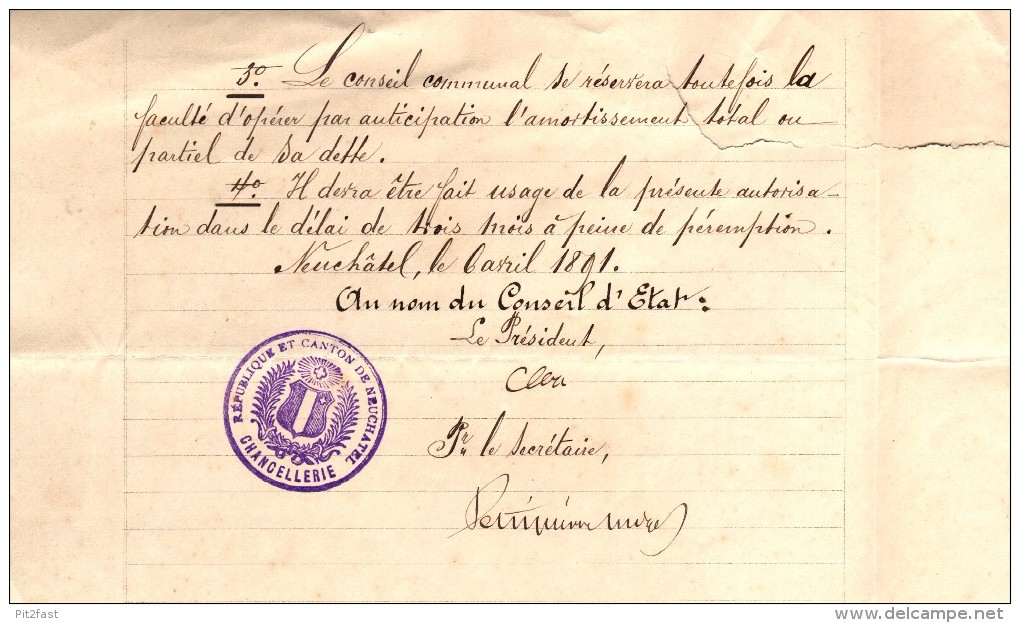 3º. Le conseil communal se réservera toutefois la
faculté d'opérer par anticipation l'amortissement total ou
partiel de sa dette.
4º. Il devra être fait usage de la présente autorisa-
tion dans le délai de trois mois à peine de péremption.
Neuchâtel, le 6 avril 1891.
Au nom du Conseil d'Etat:
Le Président,
RÉPUBLIQUE ET CANTON DE NEUCHATEL
CHANCELLERIE
Pr. le secrétaire,
Pit2fast
www.delcampe.net